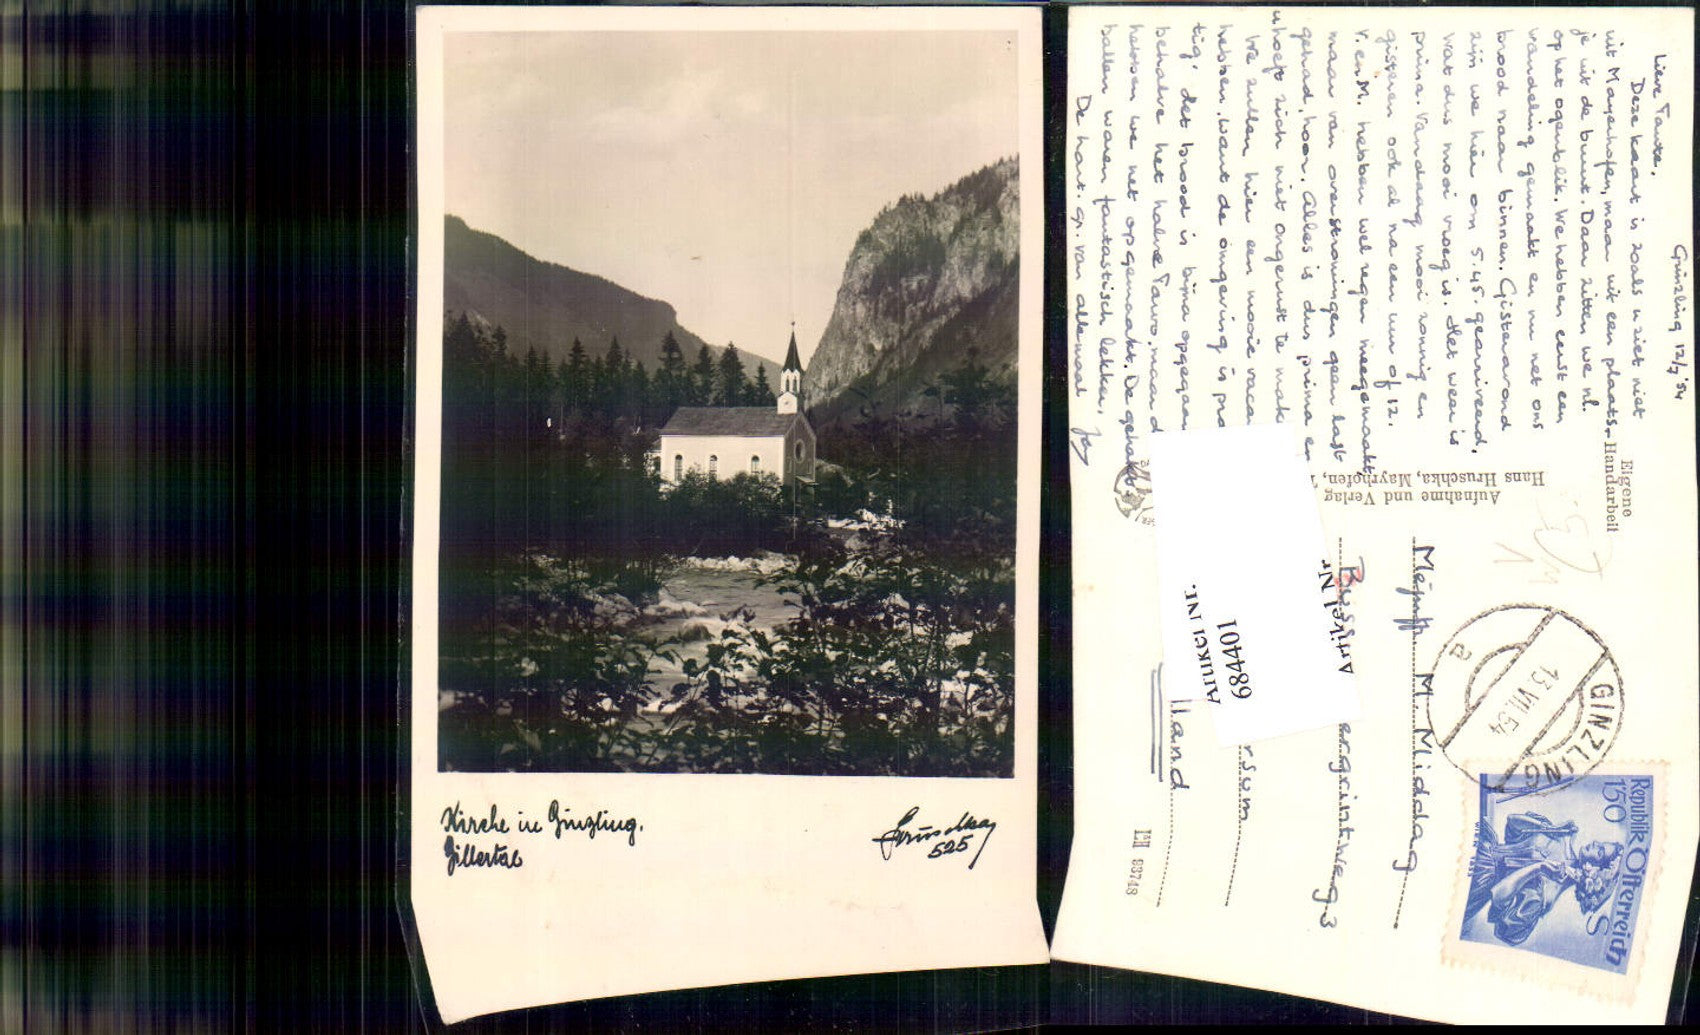 Kirche in Ginzling.
Zillertal
Hruschka
525
Ginzling 12/7 '54
Lieve Tante,
Deze kaart is zoals u ziet niet
uit Mayerhofen, maar uit een plaats-
je uit de buurt. Daar zitten we nl.
op het ogenblik. We hebben eerst een
wandeling gemaakt en nu net ons
brood naar binnen. Gisteravond
zijn we hier om 5.45 gearriveerd,
wat dus mooi vroeg is. Het weer is
prima. Vandaag mooi zonnig en
gisteren ook al na een uur of 12.
V. en M. hebben wel regen meegemaakt
maar van overstromingen geen last
gehad, hoor. Alles is dus prima en
u hoeft zich niet ongerust te mak
We zullen hier een mooie vacan
hebben, want de omgeving is pra
tig, het brood is bijna opgegaan
behalve het halve Tarwo, maar d
hebben we net opgemaakt. De gehakt
ballen waren fantastisch lekker,
De hart. gr. van allemaal
Eigene
Handarbeit
Aufnahme und Verlag
Hans Hruschka, Mayrhofen,
Mejuff. M. Middag
Buss ergrintweg 3
rsum
lland
Artikel Nr.
684401
Artikel Nr
LH 93748
GINZLING
13.VII.54
a
Republik Österreich
150 S